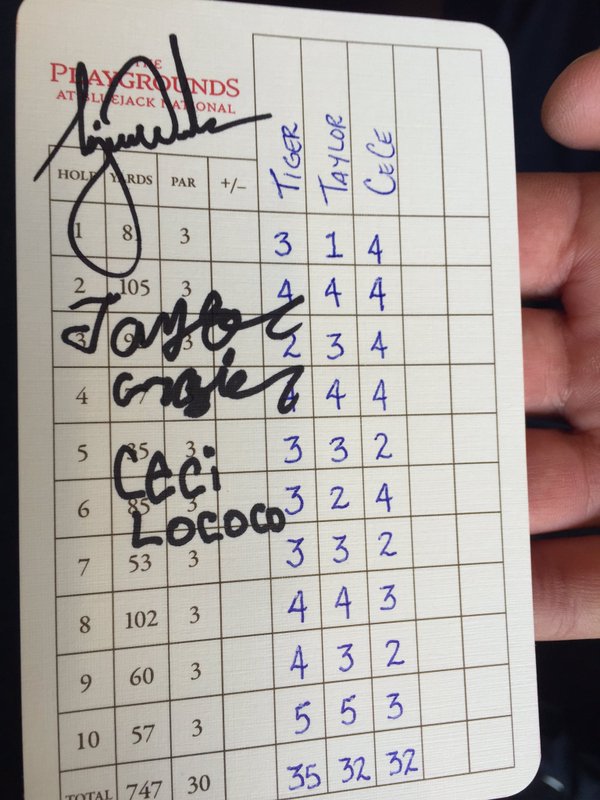 THE
PLAYGROUNDS
AT BLUEJACK NATIONAL
HOLE YARDS PAR +/– TIGER TAYLOR CECE
1 3 3 1 4
2 105 3 4 4 4
3 3 2 3 4
4 4 4 4
5 85 3 3 3 2
Taylor
Ceci
6 85 3 3 2 4
Lococo
7 53 3 3 3 2
8 102 3 4 4 3
9 60 3 4 3 2
10 57 3 5 5 3
TOTAL 747 30 35 32 32